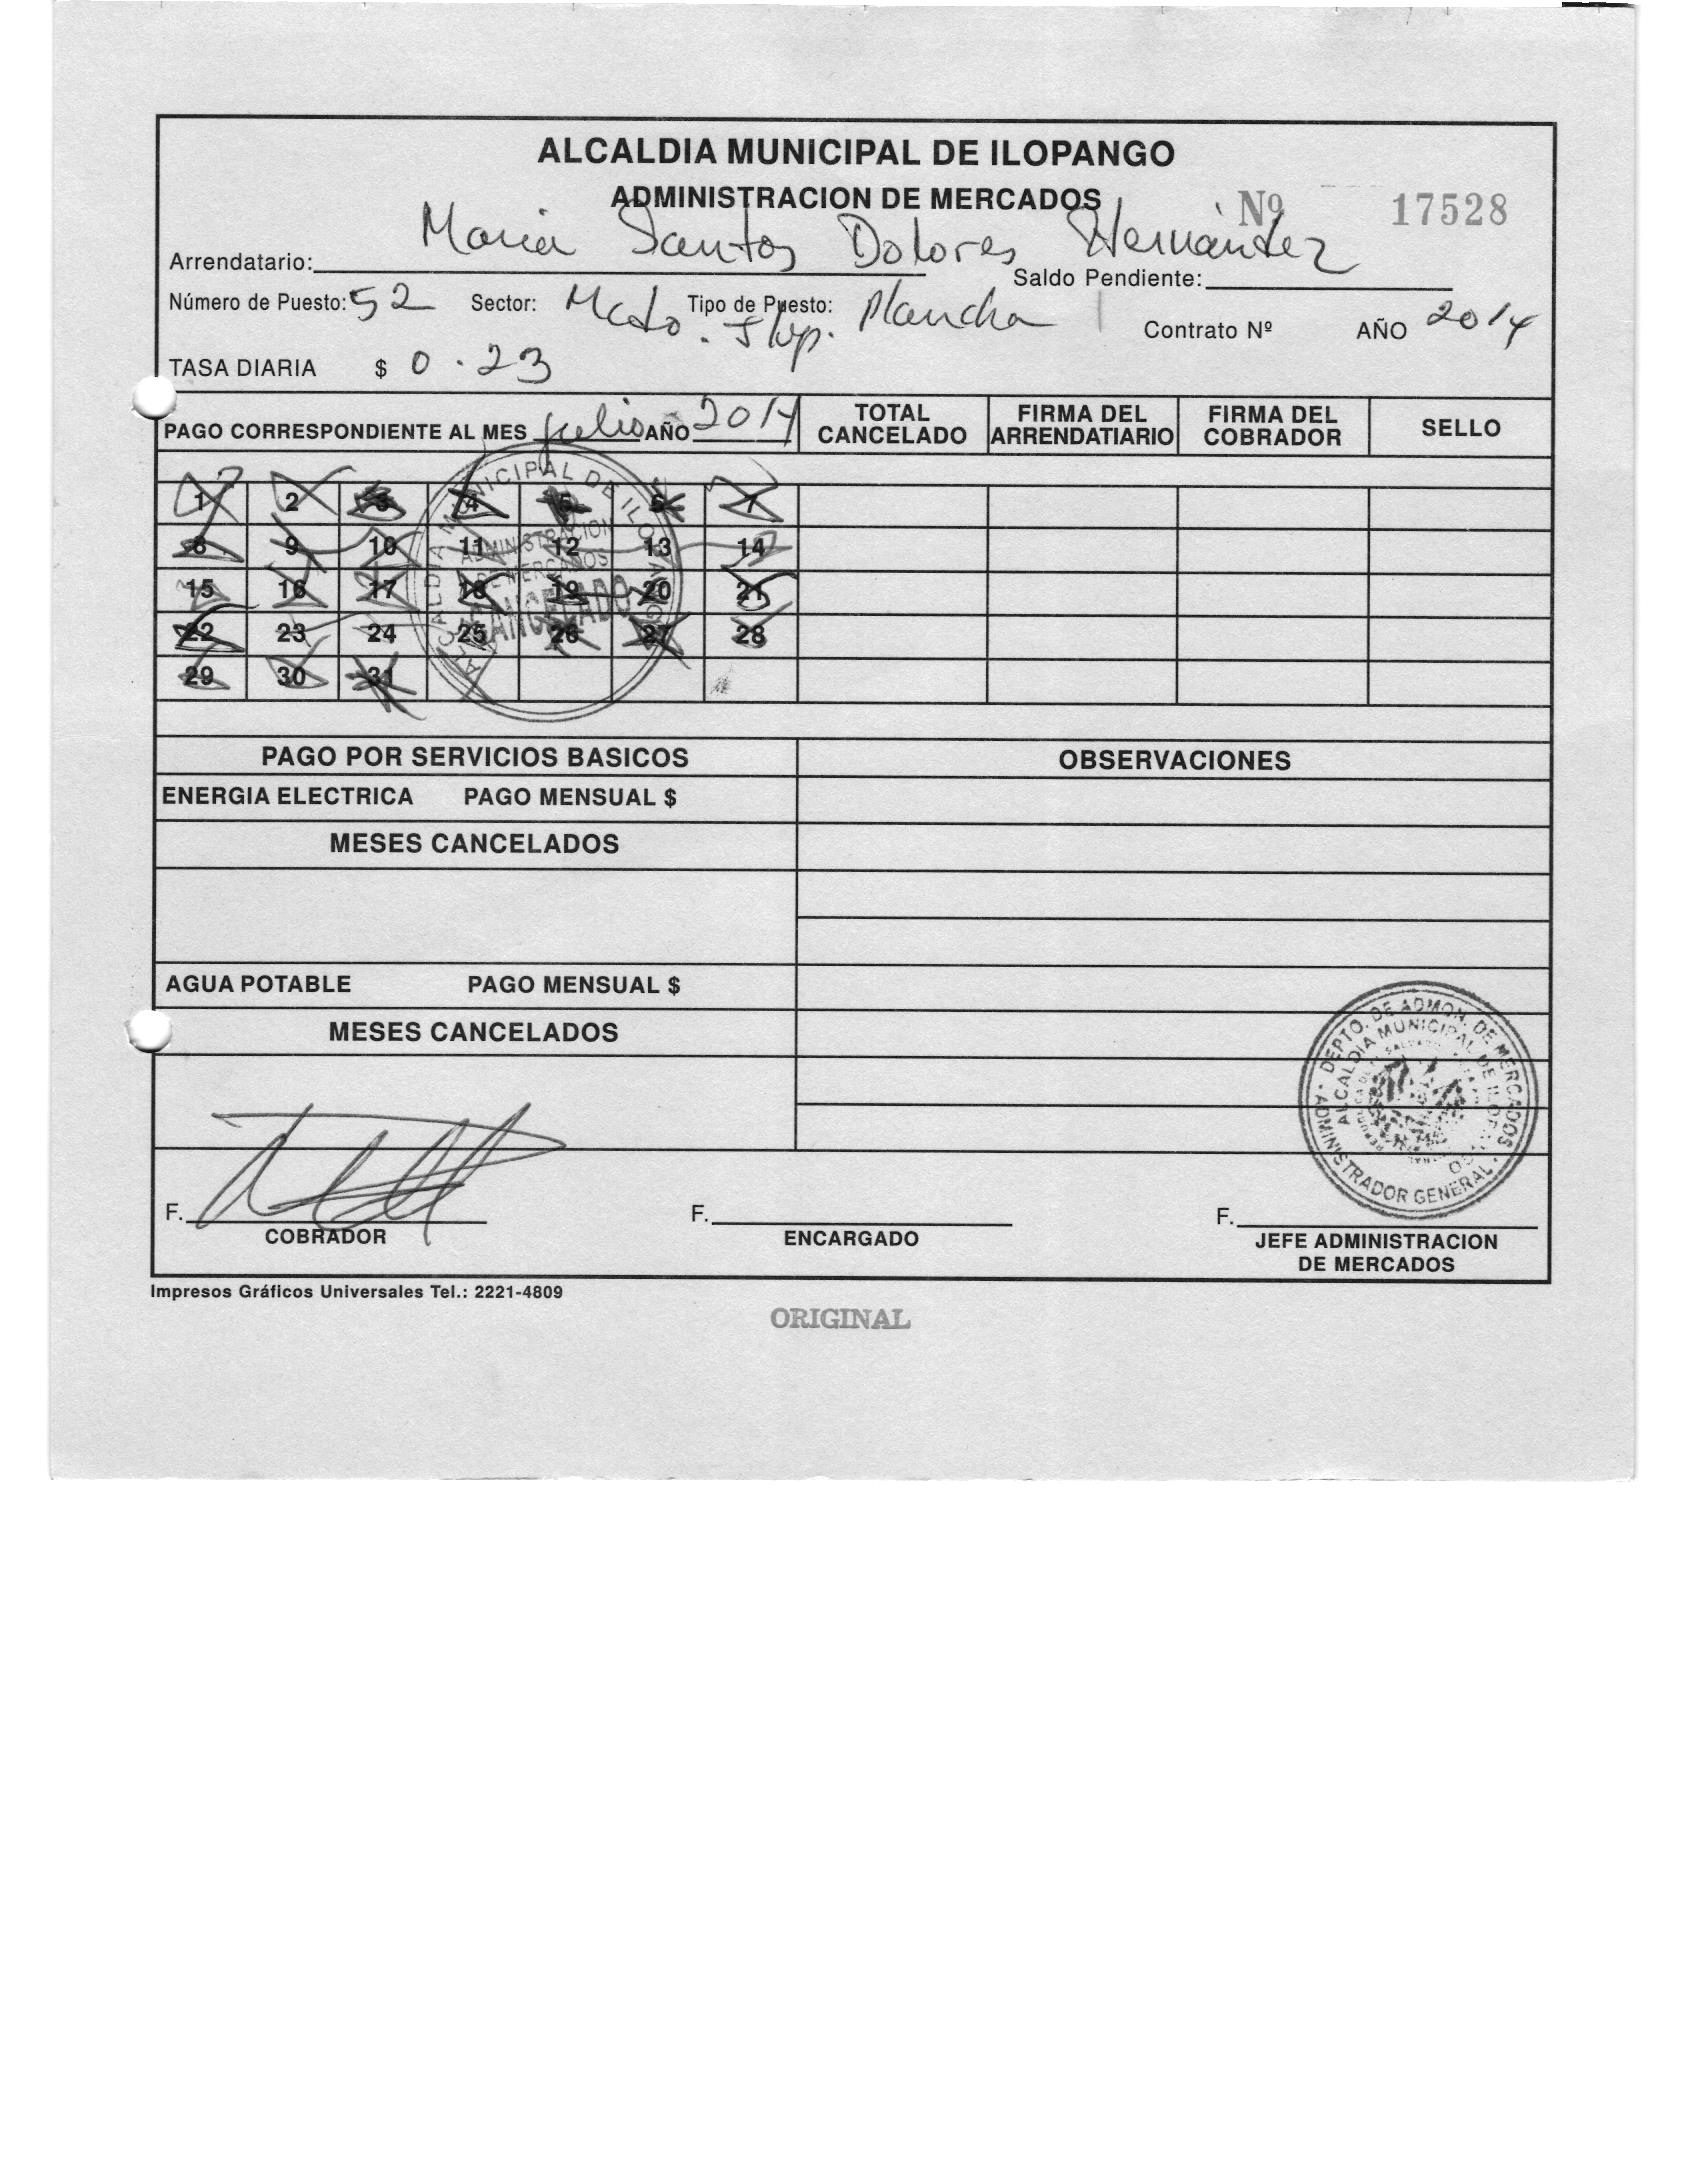 ALCALDIA MUNICIPAL DE ILOPANGO
ADMINISTRACION DE MERCADOS
Nº 17528
Arrendatario: Maria Santos Dolores Hernández
Saldo Pendiente:
Número de Puesto: 52 Sector: Mcdo. Ilop. Tipo de Puesto: Plancha
Contrato Nº AÑO 2014
TASA DIARIA $ 0.23
PAGO CORRESPONDIENTE AL MES julio AÑO 2014
TOTAL CANCELADO
FIRMA DEL ARRENDATIARIO
FIRMA DEL COBRADOR
SELLO
1 2 3 4 5 6 7
8 9 10 11 12 13 14
15 16 17 18 19 20 21
22 23 24 25 26 27 28
29 30 31
ALCALDIA MUNICIPAL DE ILOPANGO
ADMINISTRACION
DE MERCADOS
CANCELADO
PAGO POR SERVICIOS BASICOS
OBSERVACIONES
ENERGIA ELECTRICA PAGO MENSUAL $
MESES CANCELADOS
AGUA POTABLE PAGO MENSUAL $
MESES CANCELADOS
DEPTO. DE ADMON. DE MERCADOS
ALCALDIA MUNICIPAL DE ILOPANGO
ADMINISTRADOR GENERAL
F.
COBRADOR
F.
ENCARGADO
F.
JEFE ADMINISTRACION
DE MERCADOS
Impresos Gráficos Universales Tel.: 2221-4809
ORIGINAL